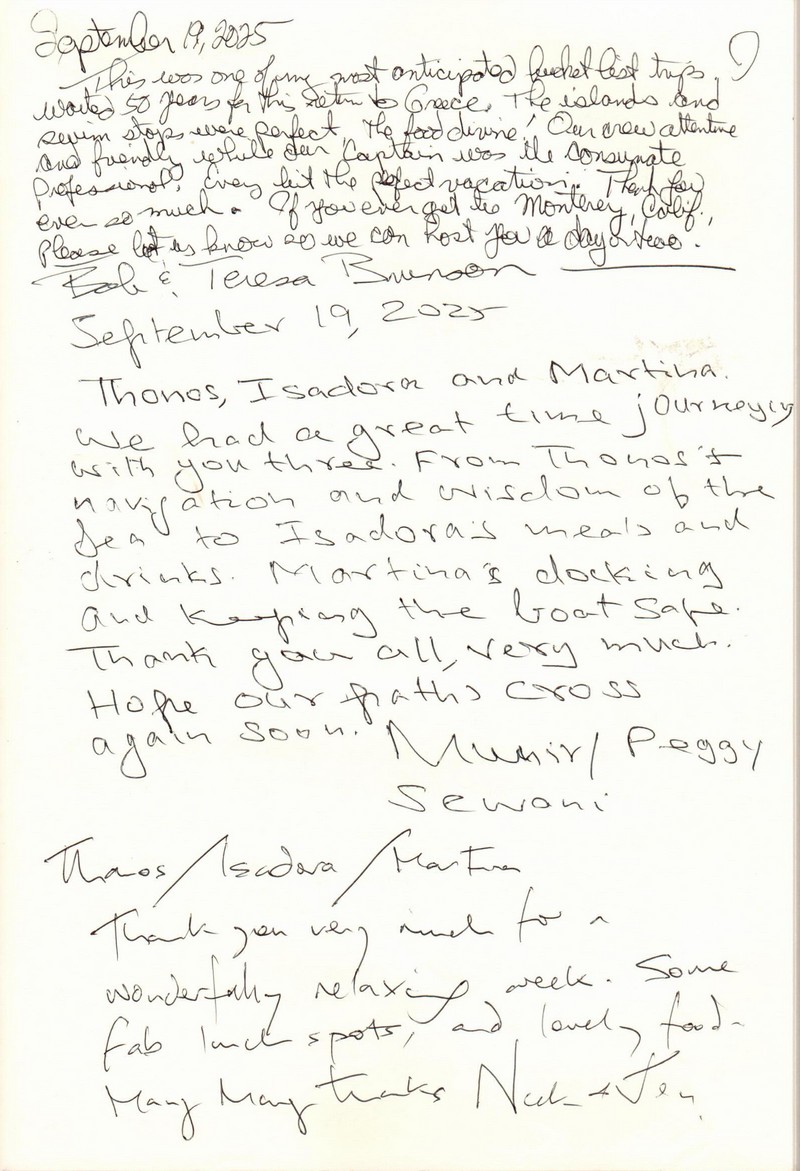 September 19, 2025
This was one of my most anticipated bucket list trips. I
waited 50 years for this return to Greece. The islands and
swim stops were perfect, the food divine! Our crew attentive
and friendly while our Captain was the consumate
Professional. Every bit the perfect vacation. Thank you
ever so much. If you ever get to Monterey, Calif.,
Please let us know so we can host you a day or two.
Bob & Teresa
September 19, 2025
Thonos, Isadora and Martina.
We had a great time journeying
with you three. From Thonos's
navigation and wisdom of the
Sea to Isadora's meals and
drinks. Martina's docking
and keeping the boat safe.
Thank you all, very much.
Hope our paths cross
again soon. Munir/Peggy
Sewani
Thanos/Isadora/Martina
Thank you very much for a
wonderfully relaxing week. Some
fab lunch spots, and lovely food.
Many Many thanks Nick + Jen